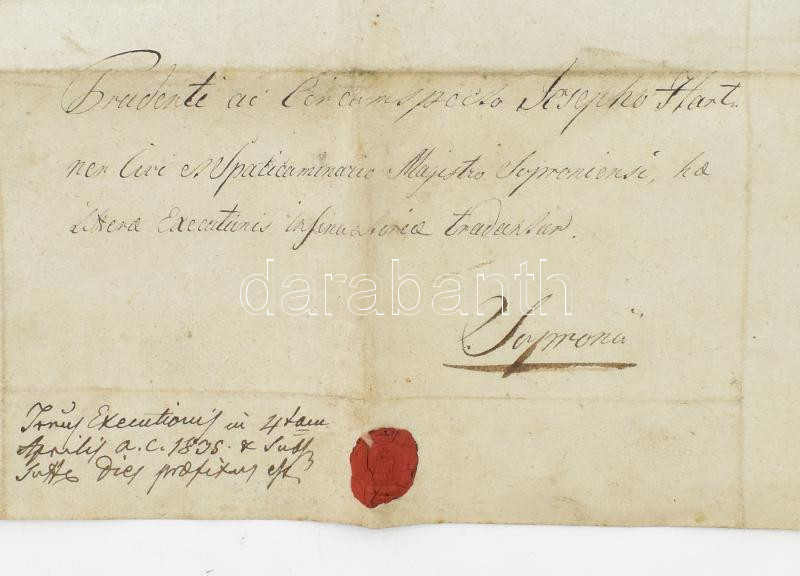 Prudenti ac Circumspecto Josepho Hart-
ner Civi et Spaticaminario Magistro Soproniensi, hæ
litteræ Executionis insinuatoriæ tradantur.
darabanth
Sopronii
Executionis in 4tam
Aprilis a.c. 1835. &
Dies præfixus est